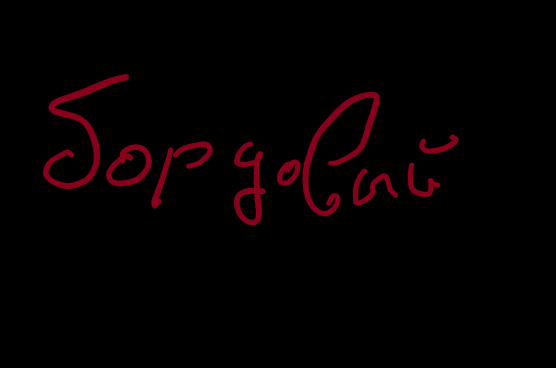 бордовий